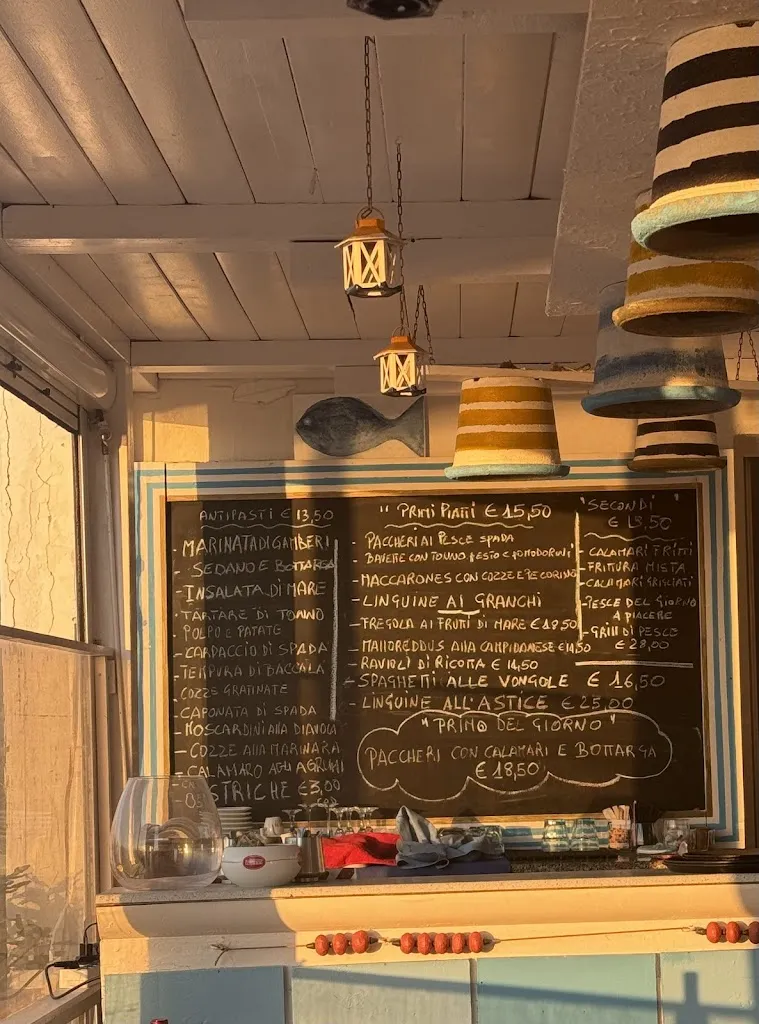 ANTIPASTI € 13,50
- MARINATA DI GAMBERI
SEDANO E BOTTARGA
- INSALATA DI MARE
- TARTARE DI TONNO
- POLPO E PATATE
- CARPACCIO DI SPADA
- TEMPURA DI BACCALA
- COZZE GRATINATE
- CAPONATA DI SPADA
- MOSCARDINI ALLA DIAVOLA
- COZZE ALLA MARINARA
- CALAMARO AGLI AGRUMI
- OSTRICHE €3,00
" PRIMI PIATTI € 15,50
- PACCHERI AI PESCE SPADA
- BAVETTE CON TONNO PESTO E POMODORINI
- MACCARONES CON COZZE E PECORINO
- LINGUINE AI GRANCHI
- FREGOLA AI FRUTTI DI MARE € 18,50
- MALLOREDDUS ALLA CAMPIDANESE € 14,50
- RAVIOLI DI RICOTTA € 14,50
- SPAGHETTI ALLE VONGOLE € 16,50
- LINGUINE ALL'ASTICE € 25,00
"PRIMO DEL GIORNO"
PACCHERI CON CALAMARI E BOTTARGA
€ 18,50
"SECONDI"
€ 18,50
- CALAMARI FRITTI
- FRITTURA MISTA
- CALAMARI GRIGLIATI
- PESCE DEL GIORNO
A PIACERE
- GRILL DI PESCE
€ 28,00